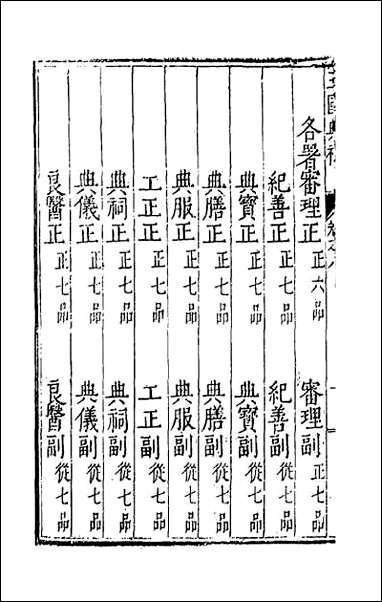 各署審理正正六品 審理副正七品
紀善正正七品 紀善副從七品
典寶正正七品 典寶副從七品
典膳正正七品 典膳副從七品
典服正正七品 典服副從七品
工正正正七品 工正副從七品
典祠正正七品 典祠副從七品
典儀正正七品 典儀副從七品
良醫正正七品 良醫副從七品